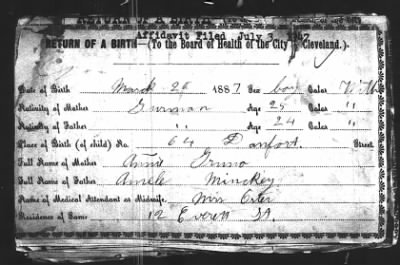 RETURN OF A BIRTH
Affidavit Filed July 3, 1967
RETURN OF A BIRTH—(To the Board of Health of the City of Cleveland.)
Date of Birth March 26 1887 Sex boy Color
Nativity of Mother German Age 25 "
Nativity of Father " Age 24 "
Place of Birth (of child) No. 64 Danforth Street
Full Name of Mother Annie
Full Name of Father Minckey
Name of Medical Attendant or Midwife. Mrs
Residence of Same 12 Everett St.